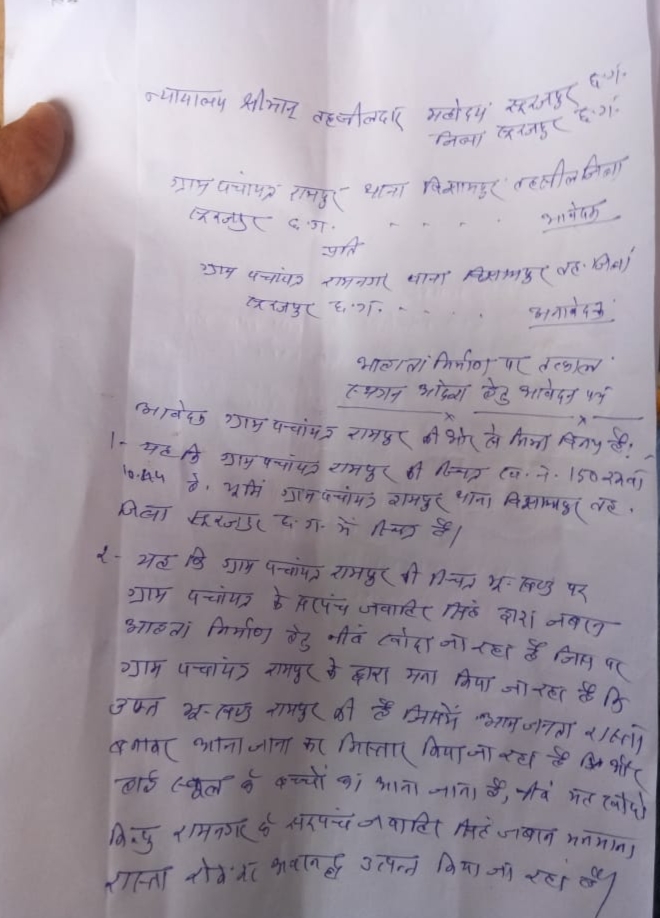 न्यायालय श्रीमान् तहसीलदार महोदय सूरजपुर छ.ग.
जिला सूरजपुर छ.ग.
ग्राम पंचायत रामपुर थाना विश्रामपुर तहसील जिला
सूरजपुर छ.ग. - - - - आवेदक
प्रति
ग्राम पंचायत रामनगर थाना विश्रामपुर तह. जिला
सूरजपुर छ.ग. - - - - अनावेदक
आहाता निर्माण पर तत्काल
स्थगन आदेश हेतु आवेदन पत्र
आवेदक ग्राम पंचायत रामपुर की ओर से निम्न विनय है:
1- यह कि ग्राम पंचायत रामपुर की स्थित ख.नं. 150 रकबा
है. भूमि ग्राम पंचायत रामपुर थाना विश्रामपुर तह.
जिला सूरजपुर छ.ग. में स्थित है।
2- यह कि ग्राम पंचायत रामपुर की स्थित भू-खण्ड पर
ग्राम पंचायत के सरपंच जवाहिर सिंह द्वारा जबरन
आहाता निर्माण हेतु नीवं खोदा जा रहा है जिस पर
ग्राम पंचायत रामपुर के द्वारा मना किया जा रहा है कि
उक्त भू-खण्ड रामपुर की है जिसमें आम जनता रास्ता
बनाकर आना जाना कर निस्तार किया जा रहा है और
हाई स्कूल के बच्चों का आना जाना है, नीवं मत खोदो
किन्तु रामनगर के सरपंच जवाहिर सिंह जबरन मनमाना
रास्ता रोककर उत्पन्न किया जा रहा है।